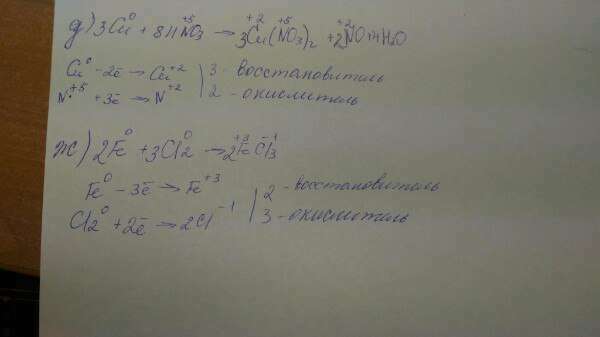 д) 3Cu⁰ + 8HN⁺⁵O₃ → 3Cu⁺²(N⁺⁵O₃)₂ + 2N⁺²O + 4H₂O
Cu⁰ - 2ē → Cu⁺² | 3 - восстановитель
N⁺⁵ + 3ē → N⁺² | 2 - окислитель
ж) 2Fe⁰ + 3Cl₂⁰ → 2Fe⁺³Cl₃⁻¹
Fe⁰ - 3ē → Fe⁺³ | 2 - восстановитель
Cl₂⁰ + 2ē → 2Cl⁻¹ | 3 - окислитель